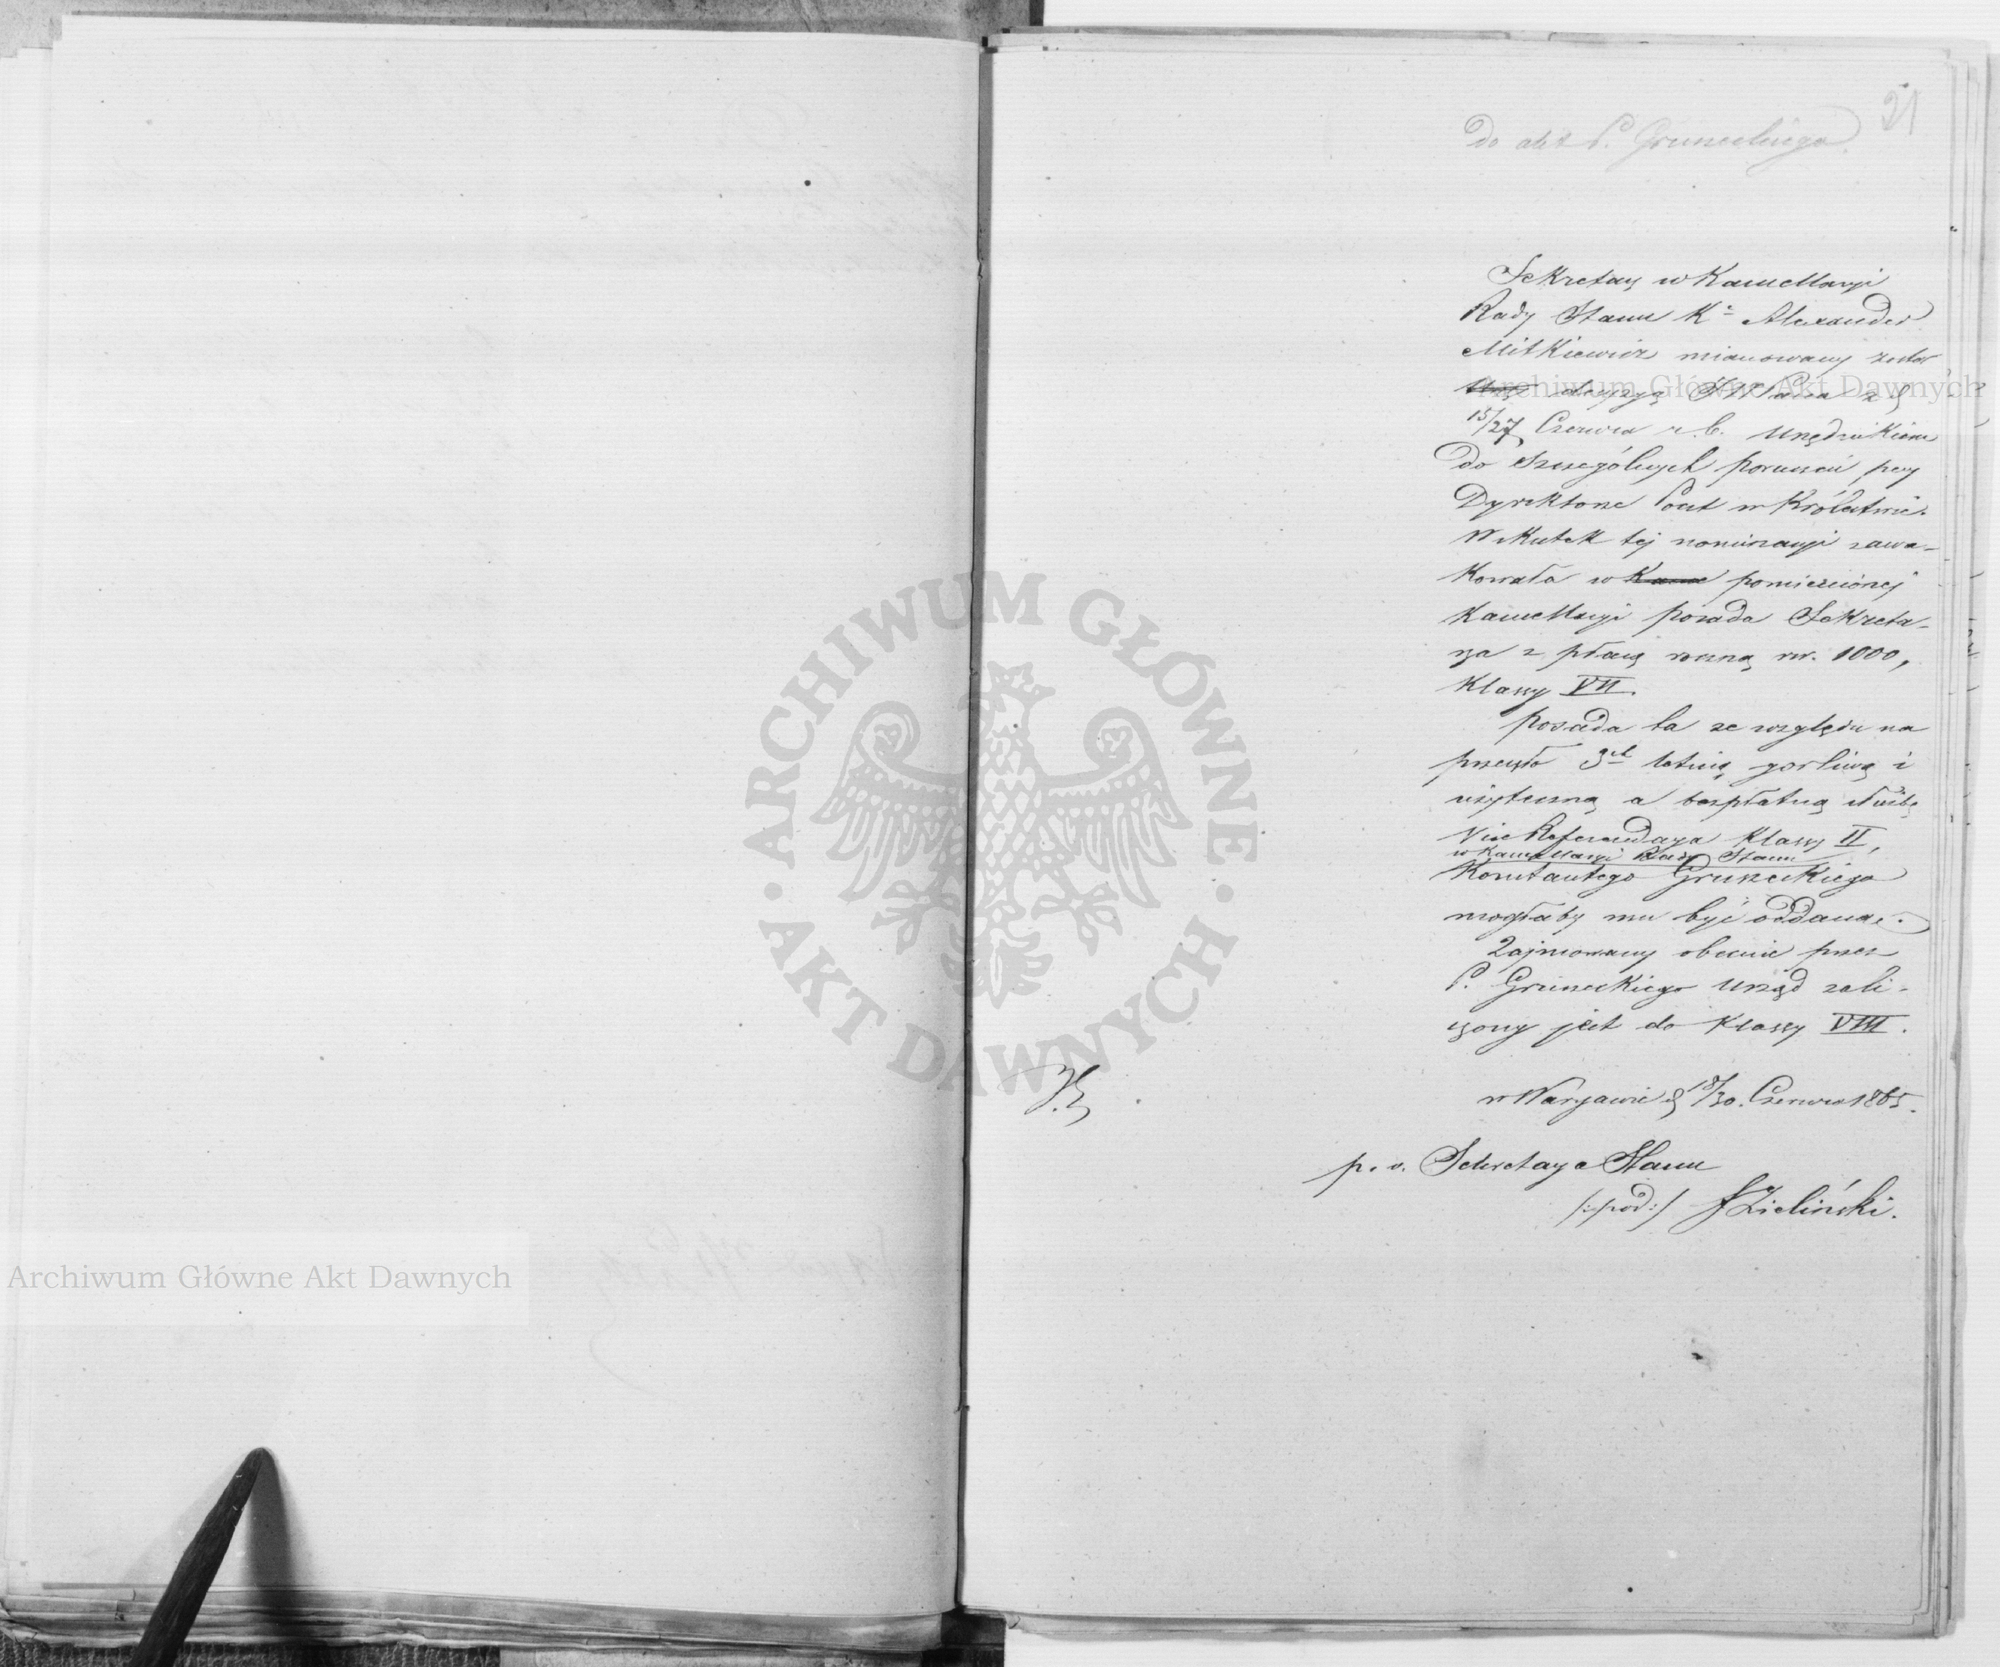 21
Do akt P. Gruneckiego.
Sekretarz w Kancellaryi
Rady Stanu K. Alexander
Mitkiewicz mianowany został
decyzyą JW Pana z d.
15/27 Czerwca r. b. Urzędnikiem
do Szczególnych poruczeń przy
Dyrektorze Poczt w Królestwie.
W skutek tej nominacyi zawa-
kowała w pomienionej
Kancellaryi posada Sekreta-
rza z płacą roczną rsr. 1000,
Klassy VII.
Posada ta ze względu na
przeszło 3ch letnią gorliwą i
użyteczną a bezpłatną służbę
Vice Referendarza Klassy II,
w Kancellaryi Rady Stanu
Konstantego Gruneckiego
mogłaby mu być oddana.
Zajmowany obecnie przez
P. Gruneckiego Urząd zali-
czony jest do Klassy VIII.
w Warszawie d. 18/30. Czerwca 1865.
p. o. Sekretarza Stanu
/:pod:/ Zieliński.
ARCHIWUM GŁÓWNE · AKT DAWNYCH ·
Archiwum Główne Akt Dawnych
Archiwum Główne Akt Dawnych